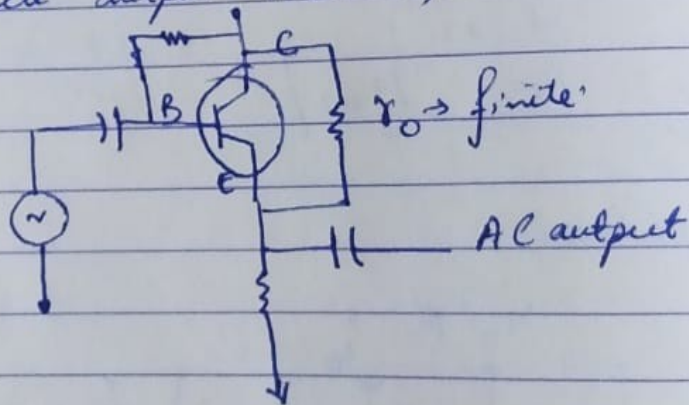 C
B
r₀ → finite
E
AC output